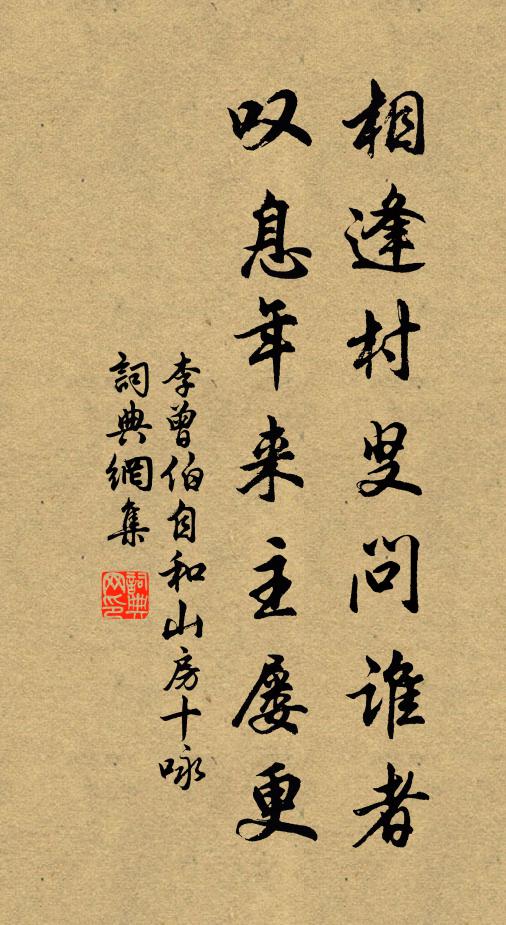 相逢村叟问谁者
叹息年来主屡更
李曾伯自和山房十咏
詞典網集
詞典网印